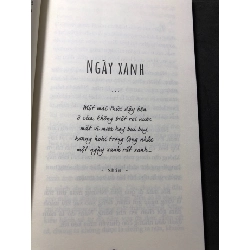 NGÀY XANH
...
Một mai thức dậy bên
ô cửa, không biết rơi nước
mắt vì mình hay
hương hoài trong lòng nhắc
một ngày xanh rất xanh...